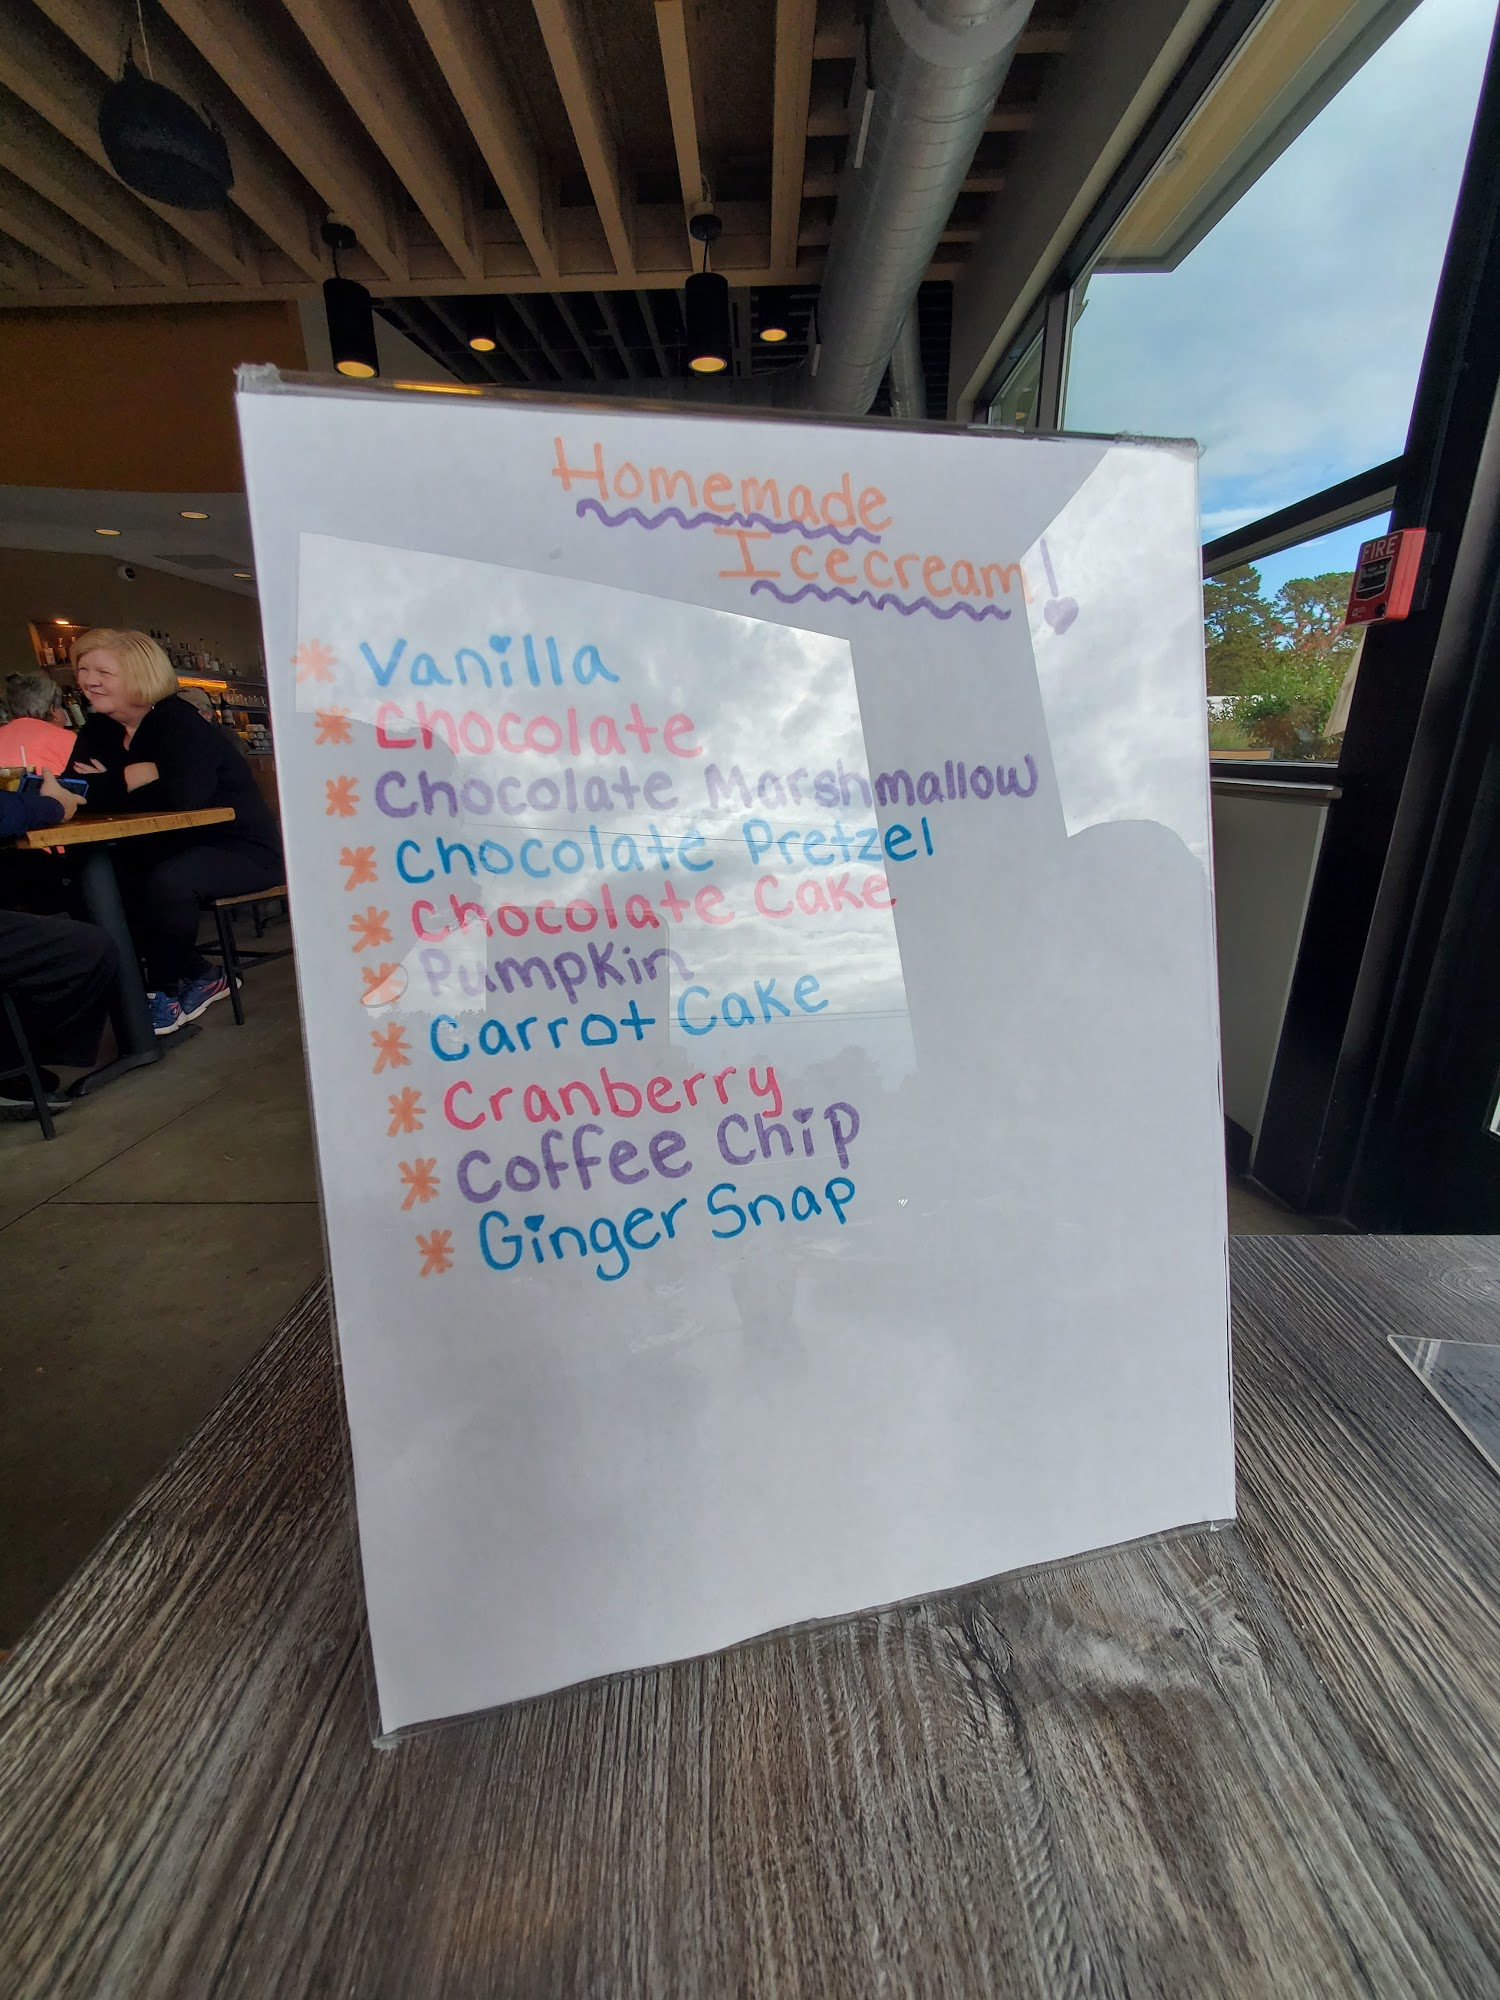 Homemade
Icecream!
* Vanilla
* Chocolate
* Chocolate Marshmallow
* Chocolate Pretzel
* Chocolate Cake
* Pumpkin
* Carrot Cake
* Cranberry
* Coffee Chip
* Ginger Snap
FIRE